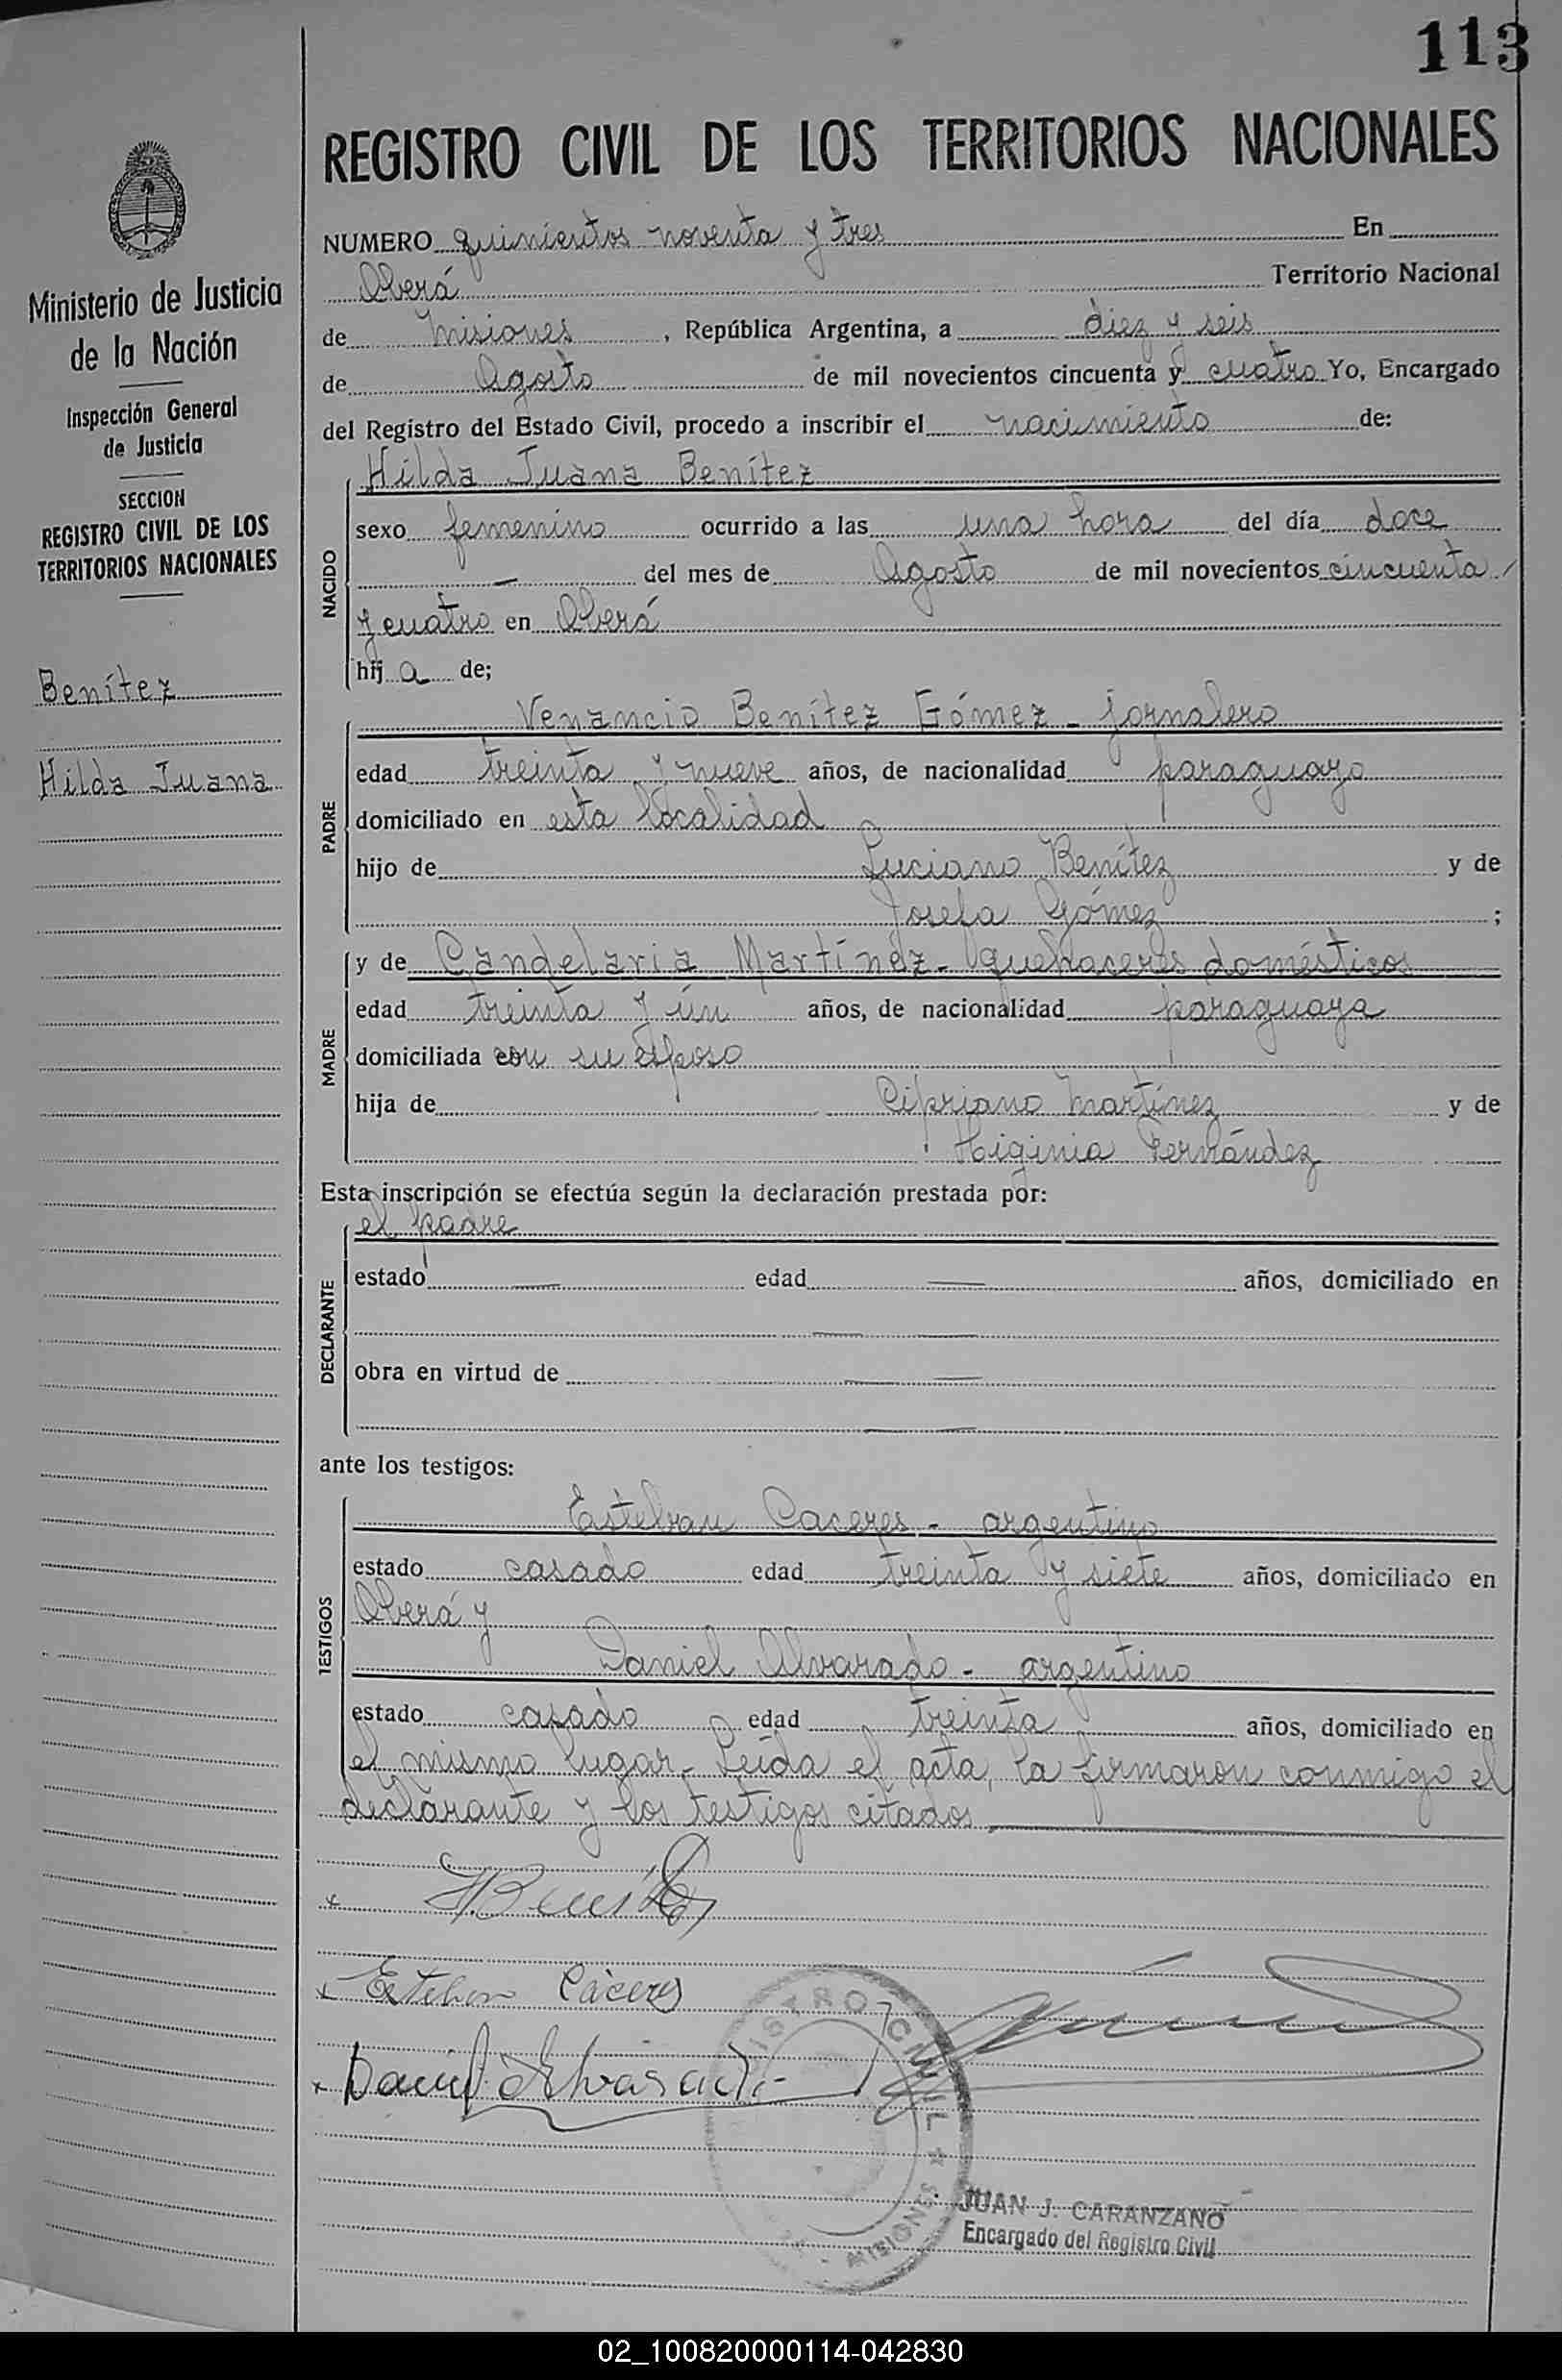 113
REGISTRO CIVIL DE LOS TERRITORIOS NACIONALES
Ministerio de Justicia
de la Nación
Inspección General
de Justicia
SECCION
REGISTRO CIVIL DE LOS
TERRITORIOS NACIONALES
Benítez
Hilda Juana
NUMERO quinientos noventa y tres En
Oberá Territorio Nacional
de Misiones, República Argentina, a diez y seis
de Agosto de mil novecientos cincuenta y cuatro Yo, Encargado
del Registro del Estado Civil, procedo a inscribir el nacimiento de:
Hilda Juana Benítez
NACIDO
sexo femenino ocurrido a las una hora del día doce
— del mes de Agosto de mil novecientos cincuenta
y cuatro en Oberá
hij a de;
Venancio Benítez Gómez - jornalero
PADRE
edad treinta y nueve años, de nacionalidad paraguayo
domiciliado en esta localidad
hijo de Luciano Benítez y de
Josefa Gómez ;
y de Candelaria Martínez - quehaceres domésticos
MADRE
edad treinta y ún años, de nacionalidad paraguaya
domiciliada con su esposo
hija de Cipriano Martínez y de
Higinia Fernández
Esta inscripción se efectúa según la declaración prestada por:
el padre
DECLARANTE
estado — edad — años, domiciliado en
— —
obra en virtud de — —
— —
ante los testigos:
TESTIGOS
Estebau Caceres - argentino
estado casado edad treinta y siete años, domiciliado en
Oberá y
Daniel Alvarado - argentino
estado casado edad treinta años, domiciliado en
el mismo lugar - Leída el acta, la firmaron conmigo el
declarante y los testigos citados
x VBenítez
x Esteban Cáceres
x Daniel Alvarado
REGISTRO CIVIL
MISIONES
JUAN J. CARANZANO
Encargado del Registro Civil
02_100820000114-042830